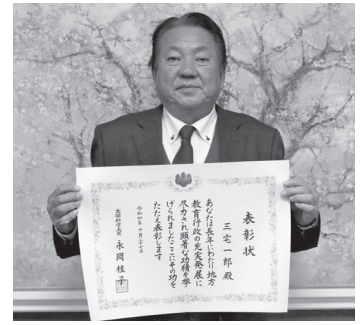 表彰状
三宅一郎 殿
あなたは長年にわたり地方
教育行政の充実発展に
尽力され顕著な功績を挙
げられましたここにその功を
たたえ表彰します
令和四年十月二十七日
文部科学大臣 永岡桂子